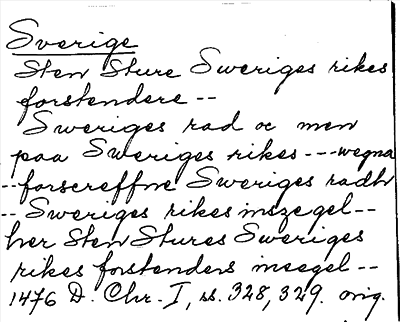 Sverige
Sten Sture Sweriges rikes
forstendere --
Sweriges rad oc men
paa Sweriges rikes --- wegna
-- forscreffne Sweriges radh
-- Sweriges rikes inszegel --
her Sten Stures Sweriges
rikes forstenders inseegel --
1476 D. Chr. I, ss. 328, 329. orig.